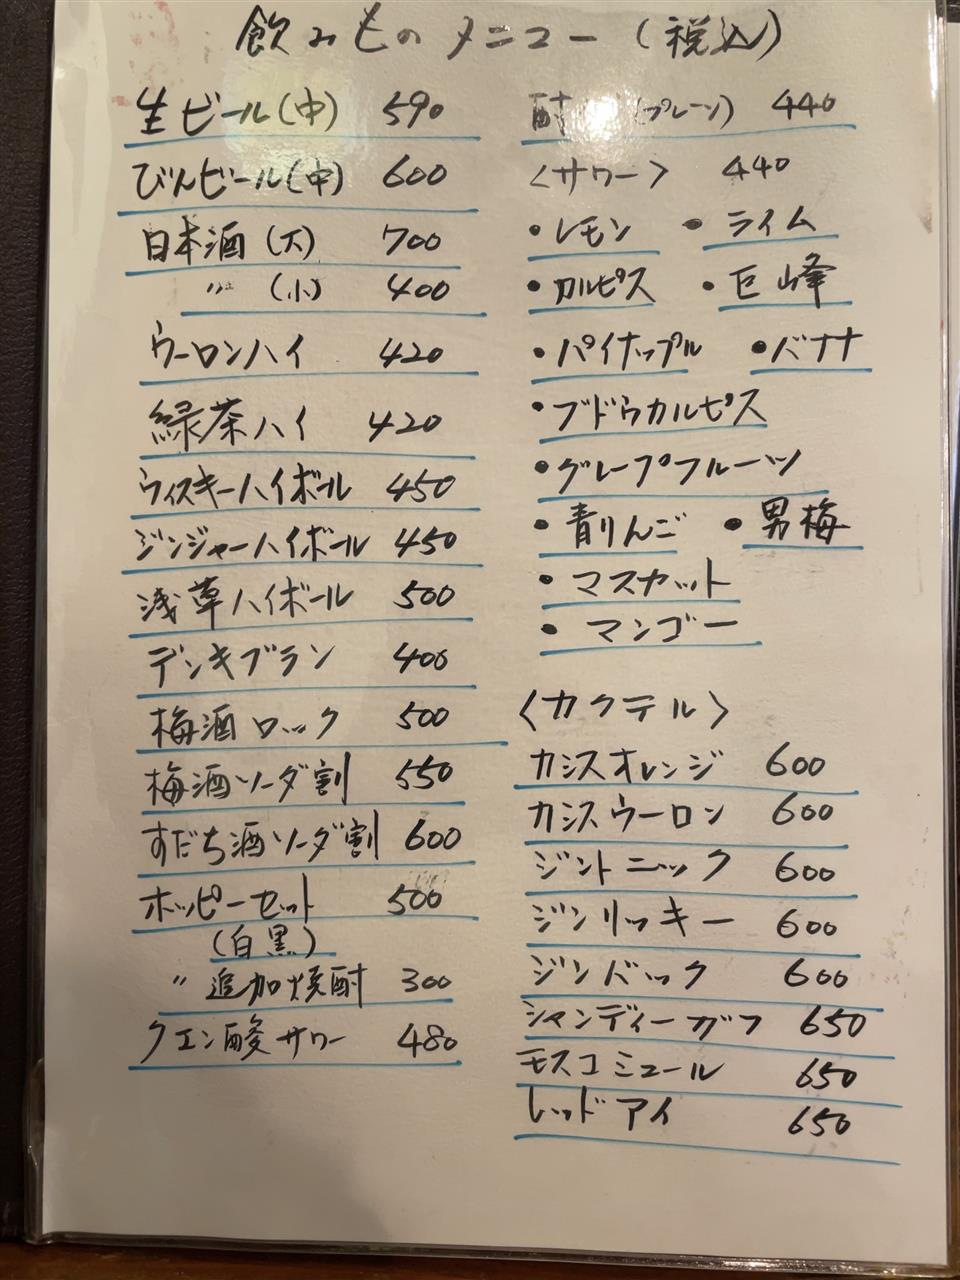 飲みものメニュー(税込)
生ビール(中) 590
びんビール(中) 600
日本酒(大) 700
〃 (小) 400
ウーロンハイ 420
緑茶ハイ 420
ウィスキーハイボール 450
ジンジャーハイボール 450
浅草ハイボール 500
デンキブラン 400
梅酒ロック 500
梅酒ソーダ割 550
すだち酒ソーダ割 600
ホッピーセット 500
(白黒)
〃 追加焼酎 300
クエン酸サワー 480
酎 (プレーン) 440
<サワー> 440
・レモン ・ライム
・カルピス ・巨峰
・パイナップル ・バナナ
・ブドウカルピス
・グレープフルーツ
・青りんご ・男梅
・マスカット
・マンゴー
<カクテル>
カシスオレンジ 600
カシスウーロン 600
ジントニック 600
ジンリッキー 600
ジンバック 600
シャンディーガフ 650
モスコミュール 650
レッドアイ 650